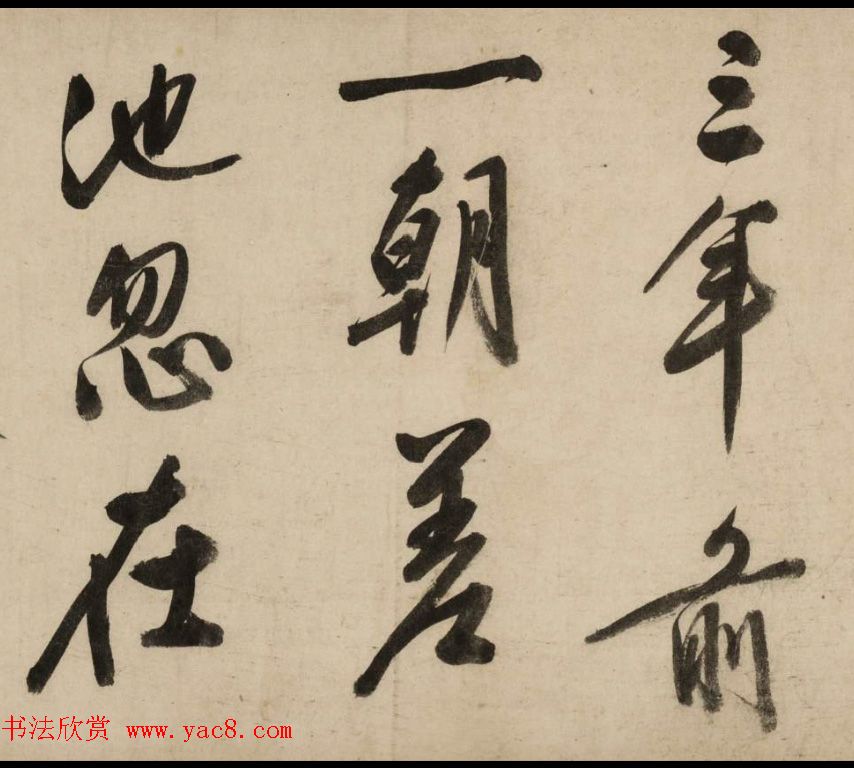 三年前
一朝差
池忽在
书法欣赏 www.yac8.com